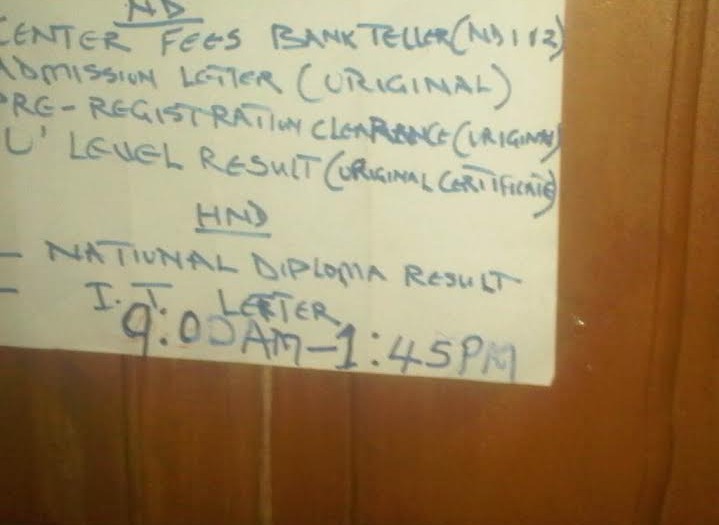 ND
CENTER FEES BANK TELLER (ND 1 & 2)
ADMISSION LETTER (ORIGINAL)
PRE-REGISTRATION CLEARANCE (ORIGINAL)
O' LEVEL RESULT (ORIGINAL CERTIFICATE)
HND
- NATIONAL DIPLOMA RESULT
- I.T LETTER
9:00AM-1:45PM